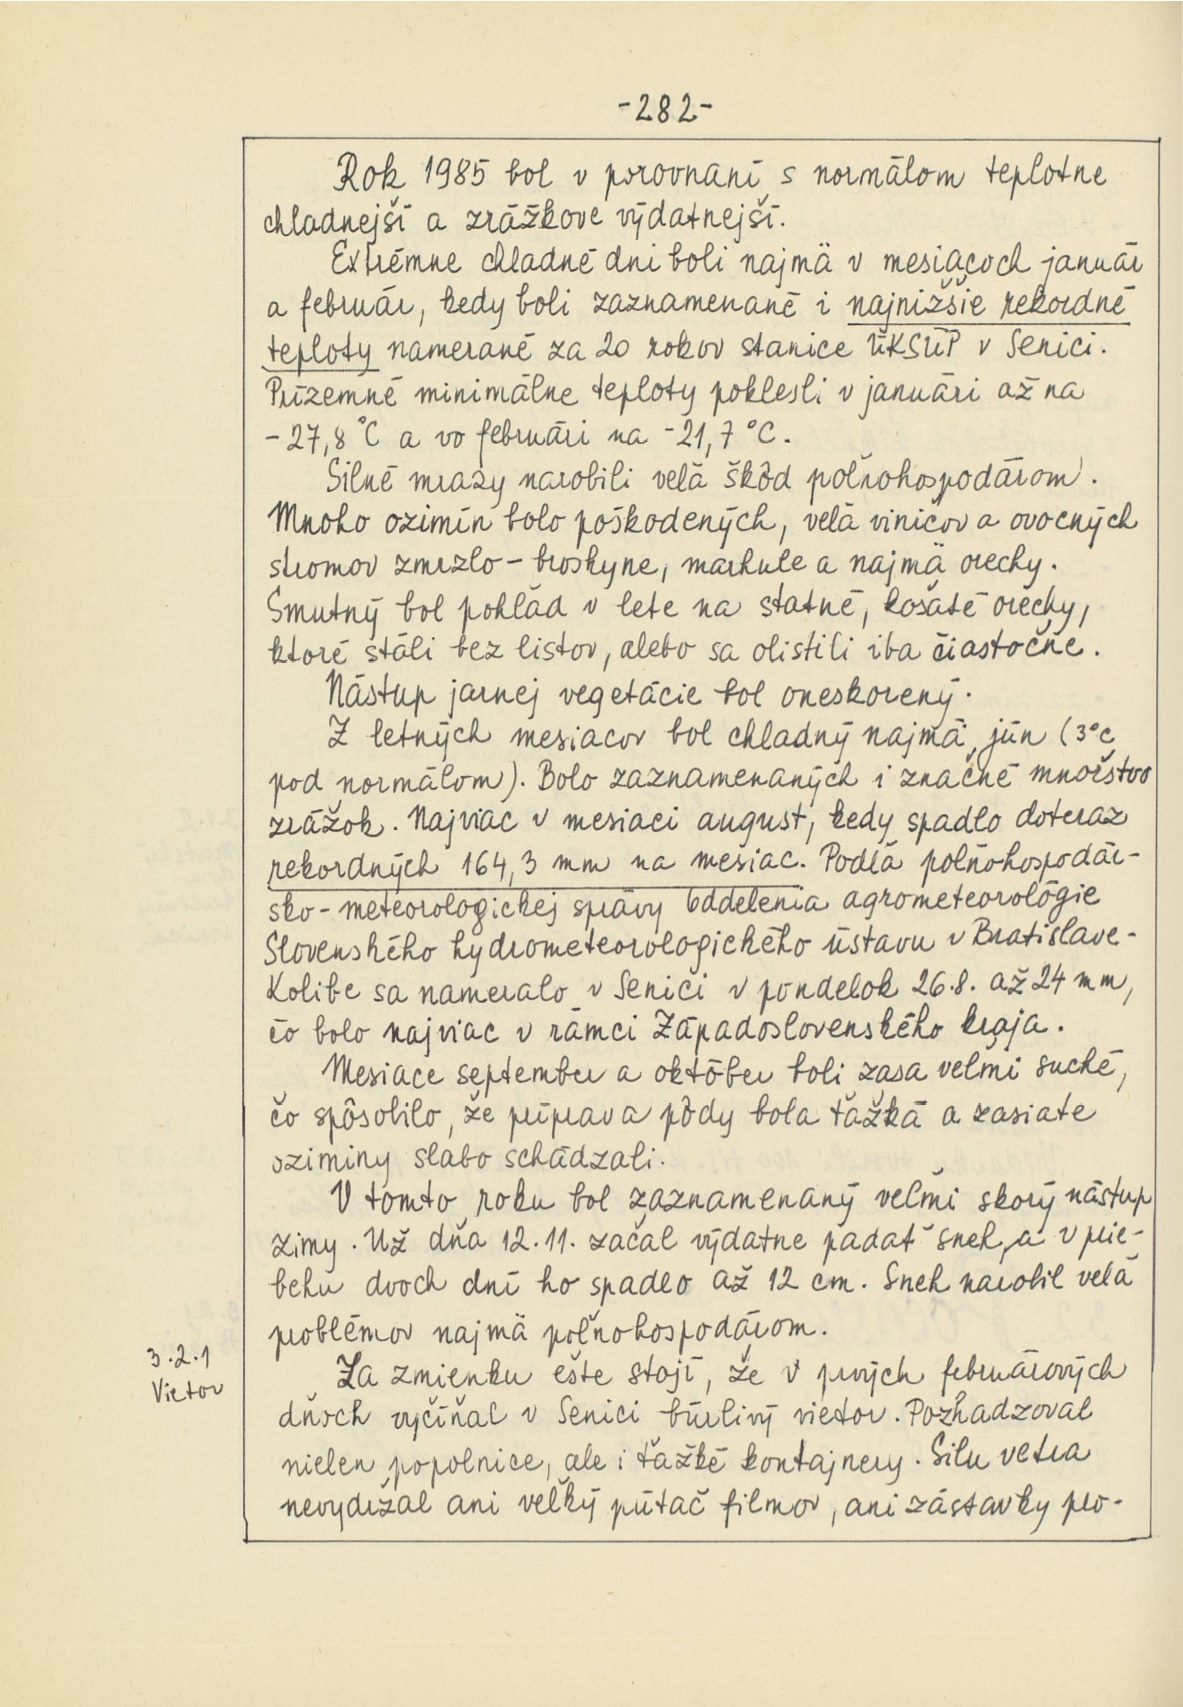 -282-
Rok 1985 bol v porovnaní s normálom teplotne
chladnejší a zrážkove výdatnejší.
Extrémne chladné dni boli najmä v mesiacoch január
a február, kedy boli zaznamenané i najnižšie rekordné
teploty namerané za 20 rokov stanice ÚKSÚP v Senici.
Prízemné minimálne teploty poklesli v januári až na
-27,8 °C a vo februári na -21,7 °C.
Silné mrazy narobili veľa škôd poľnohospodárom.
Mnoho ozimín bolo poškodených, veľa viničov a ovocných
stromov zmrzlo - broskyne, marhule a najmä orechy.
Smutný bol pohľad v lete na statné, košaté orechy,
ktoré stáli bez listov, alebo sa olistili iba čiastočne.
Nástup jarnej vegetácie bol oneskorený.
Z letných mesiacov bol chladný najmä jún (3°c
pod normálom). Bolo zaznamenaných i značné množstvo
zrážok. Najviac v mesiaci august, kedy spadlo doteraz
rekordných 164,3 mm na mesiac. Podľa poľnohospodár-
sko-meteorologickej správy Oddelenia agrometeorológie
Slovenského hydrometeorologického ústavu v Bratislave-
Kolibe sa nameralo v Senici v pondelok 26.8. až 24 mm,
čo bolo najviac v rámci Západoslovenského kraja.
Mesiace september a október boli zasa veľmi suché,
čo spôsobilo, že príprava pôdy bola ťažká a zasiate
oziminy slabo schádzali.
V tomto roku bol zaznamenaný veľmi skorý nástup
zimy. Už dňa 12.11. začal výdatne padať sneh, a v prie-
behu dvoch dní ho spadlo až 12 cm. Sneh narobil veľa
problémov najmä poľnohospodárom.
3.2.1
Vietor
Za zmienku ešte stojí, že v prvých februárových
dňoch vyčíňal v Senici búrlivý vietor. Pozhadzoval
nielen popolnice, ale i ťažké kontajnery. Silu vetra
nevydržal ani veľký pútač filmov, ani zástavky pro-